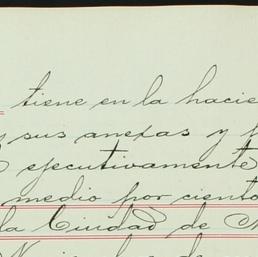 tiene en la hacie
y sus anexas y p
ejecutivamente
medio por ciento
la Ciudad de M